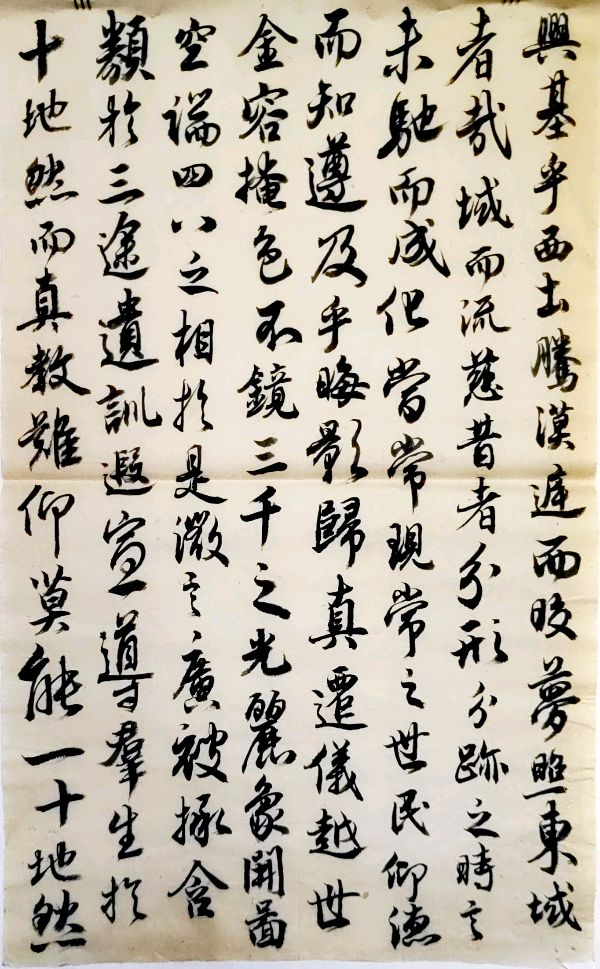 興基乎西土騰漢庭而皎夢照東域
者哉域而流慈昔者分形分跡之時言
未馳而成化當常現常之世民仰德
而知遵及乎晦影歸真遷儀越世
金容掩色不鏡三千之光麗象開圖
空端四八之相於是微言廣被拯含
類於三途遺訓遐宣導羣生於
十地然而真教難仰莫能一十地然